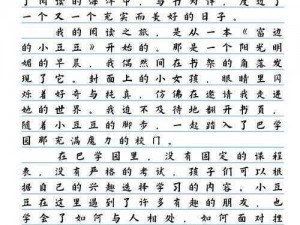 了阅读的海洋中，与书为伴，度过了
一个又一个充实而美好的日子。
我的阅读之旅，是从一本《窗边
的小豆豆》开始的。那是一个阳光明
媚的早晨，我偶然间在书架的角落发
现了它。封面上的小女孩，眼睛里闪
烁着好奇与纯真，仿佛在邀请我走进
她的世界。我迫不及待地翻开书页，
随着小豆豆的脚步，一起踏入了巴学
园那充满魔力的校门。
在巴学园里，没有固定的课程
表，没有严格的考试，孩子们可以根
据自己的兴趣选择学习的内容。小豆
豆在这里遇到了许多有趣的朋友，也
学会了如何与人相处，如何面对挫